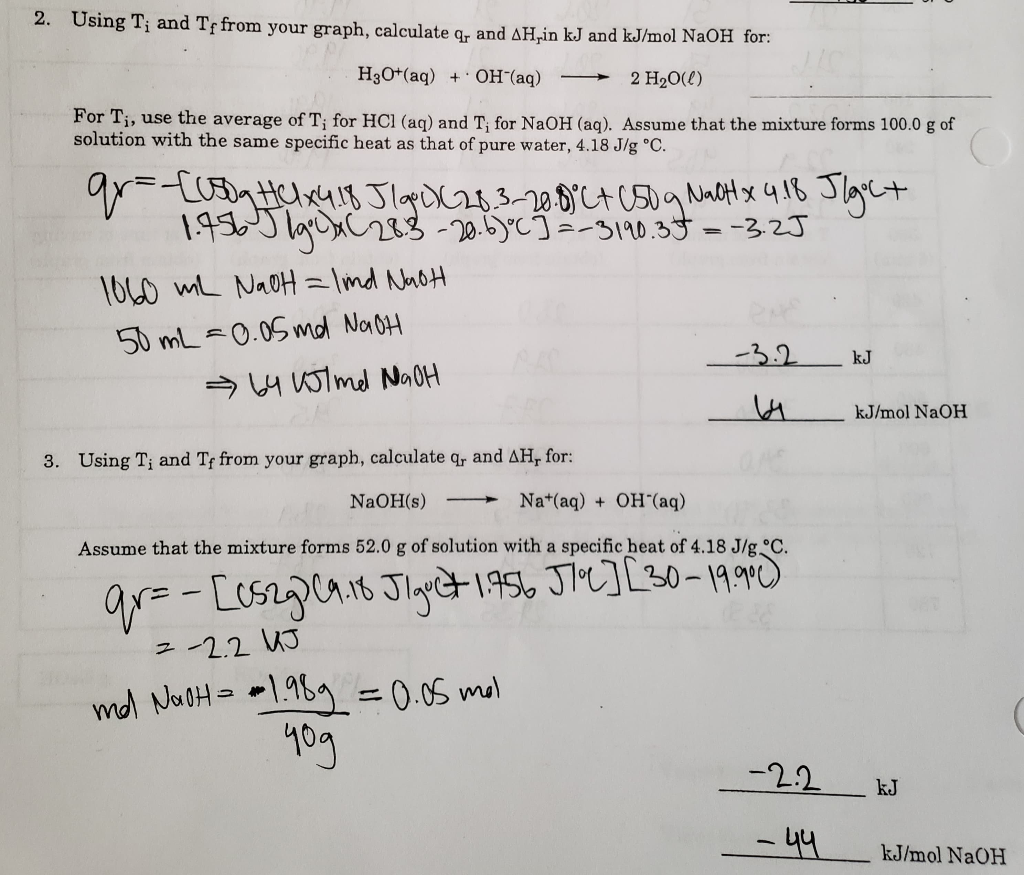 2. Using Ti and Tf from your graph, calculate qr and ΔHr in kJ and kJ/mol NaOH for:
H3O+(aq) + OH-(aq) ⟶ 2 H2O(ℓ)
For Ti, use the average of Ti for HCl (aq) and Ti for NaOH (aq). Assume that the mixture forms 100.0 g of
solution with the same specific heat as that of pure water, 4.18 J/g °C.
qr = -[(50g HCl x 4.18 J/g°C)(28.3-20.6)°C + (50g NaOH x 4.18 J/g°C +
1.756 J/g°C)x(28.3 - 20.6)°C] = -3190.3J = -3.2J
1000 mL NaOH = 1mol NaOH
50 mL = 0.05 mol NaOH
⇒ 64 kJ/mol NaOH
-3.2 kJ
64 kJ/mol NaOH
3. Using Ti and Tf from your graph, calculate qr and ΔHr for:
NaOH(s) ⟶ Na+(aq) + OH-(aq)
Assume that the mixture forms 52.0 g of solution with a specific heat of 4.18 J/g °C.
qr = - [(52g)(4.18 J/g°C + 1.756 J/°C] [30 - 19.9°C)
= -2.2 kJ
mol NaOH = 1.98g = 0.05 mol
40g
-2.2 kJ
-44 kJ/mol NaOH